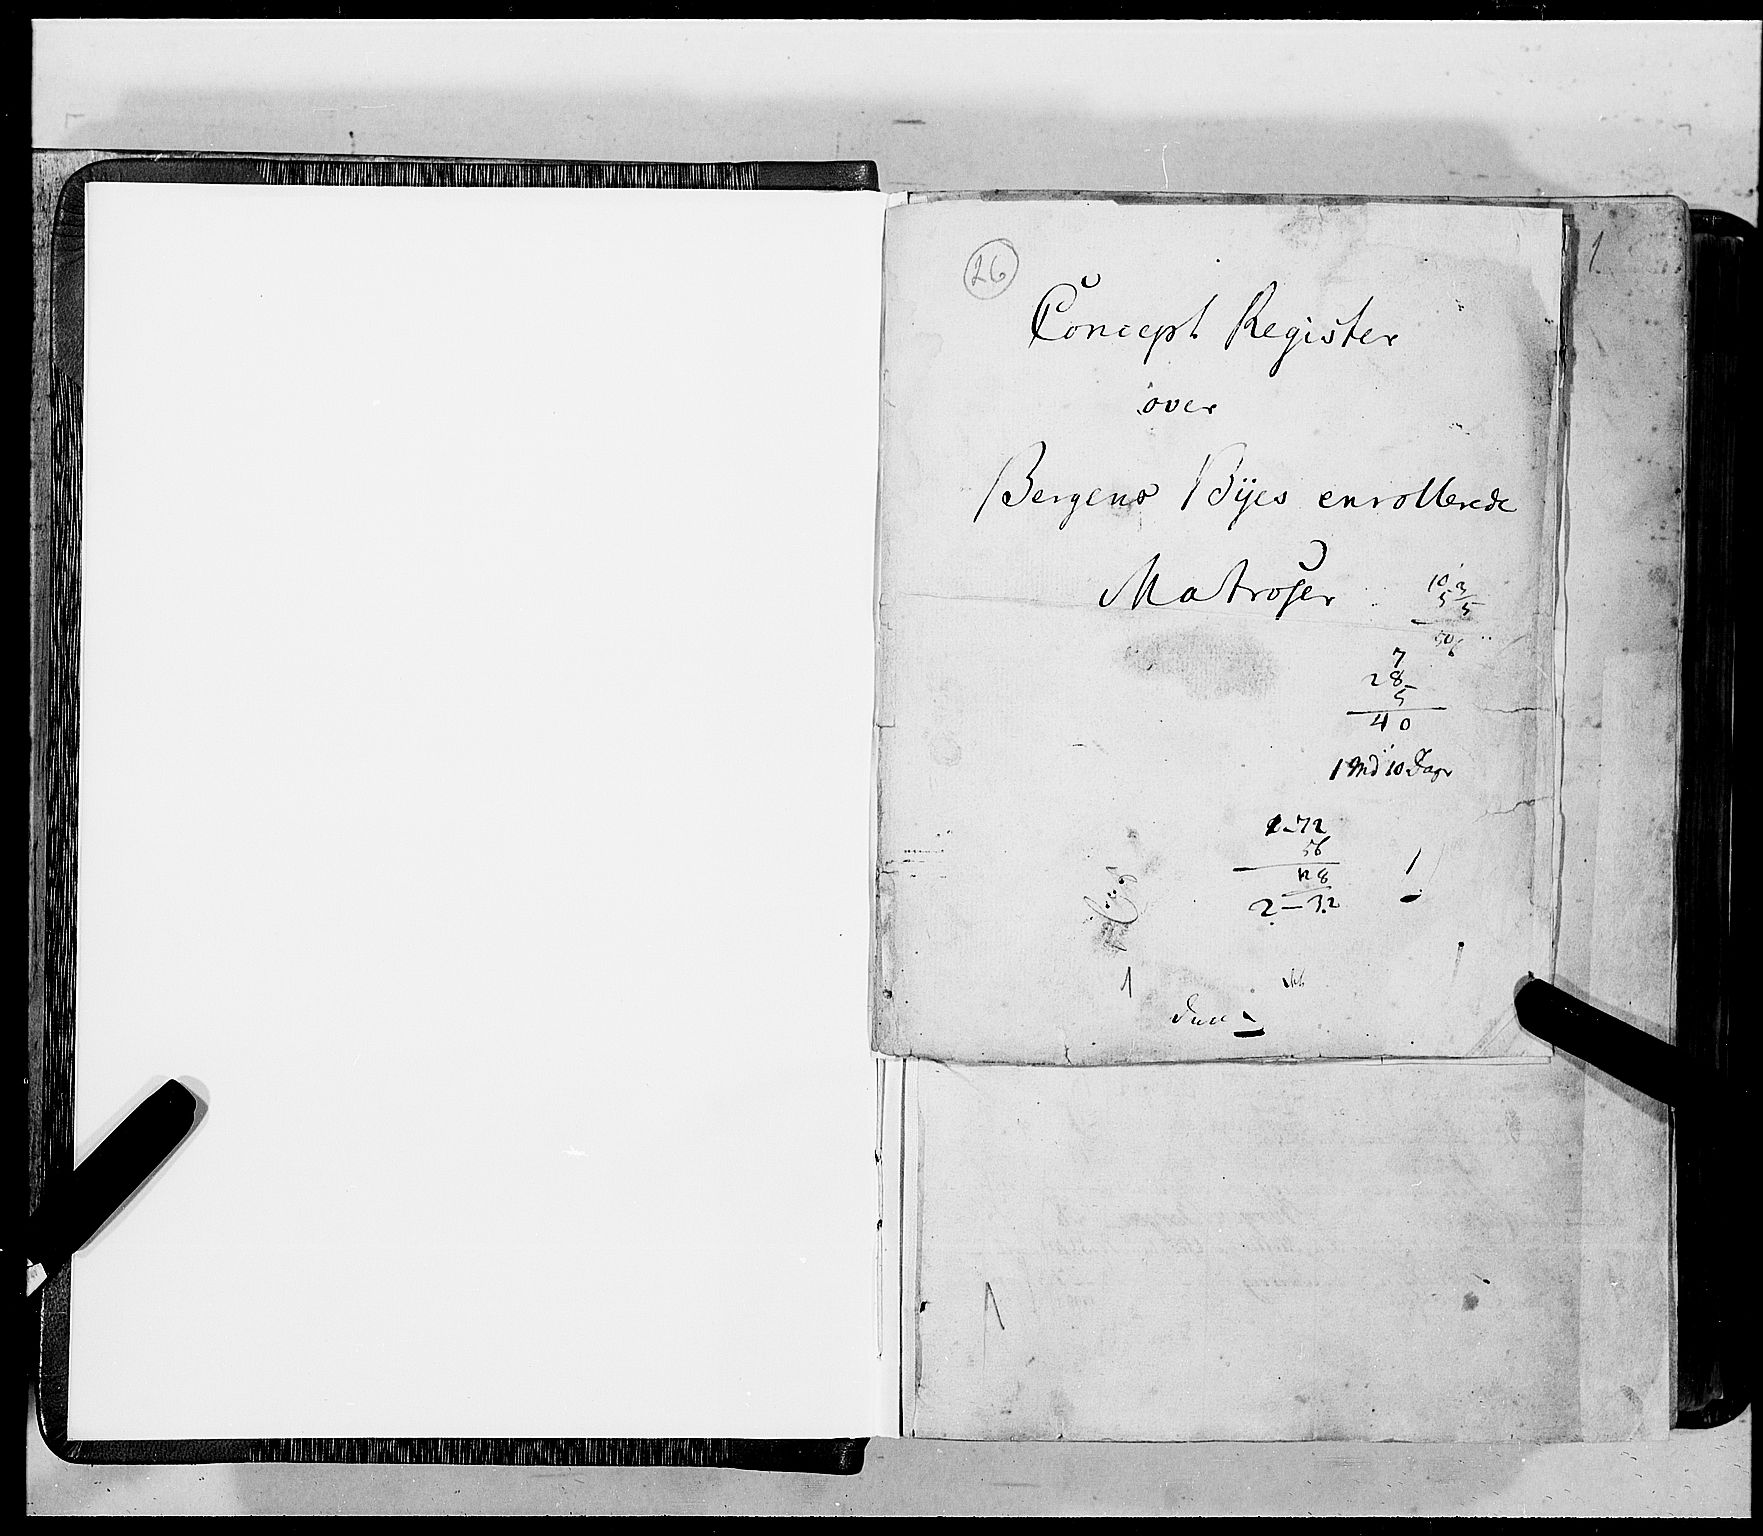 26
1
Concept Register
over
Bergens Bÿes enrollerede
Matroser
7
28
5
40
1 Md 10 Dage
1-72
56
128
2-32
1
1
1